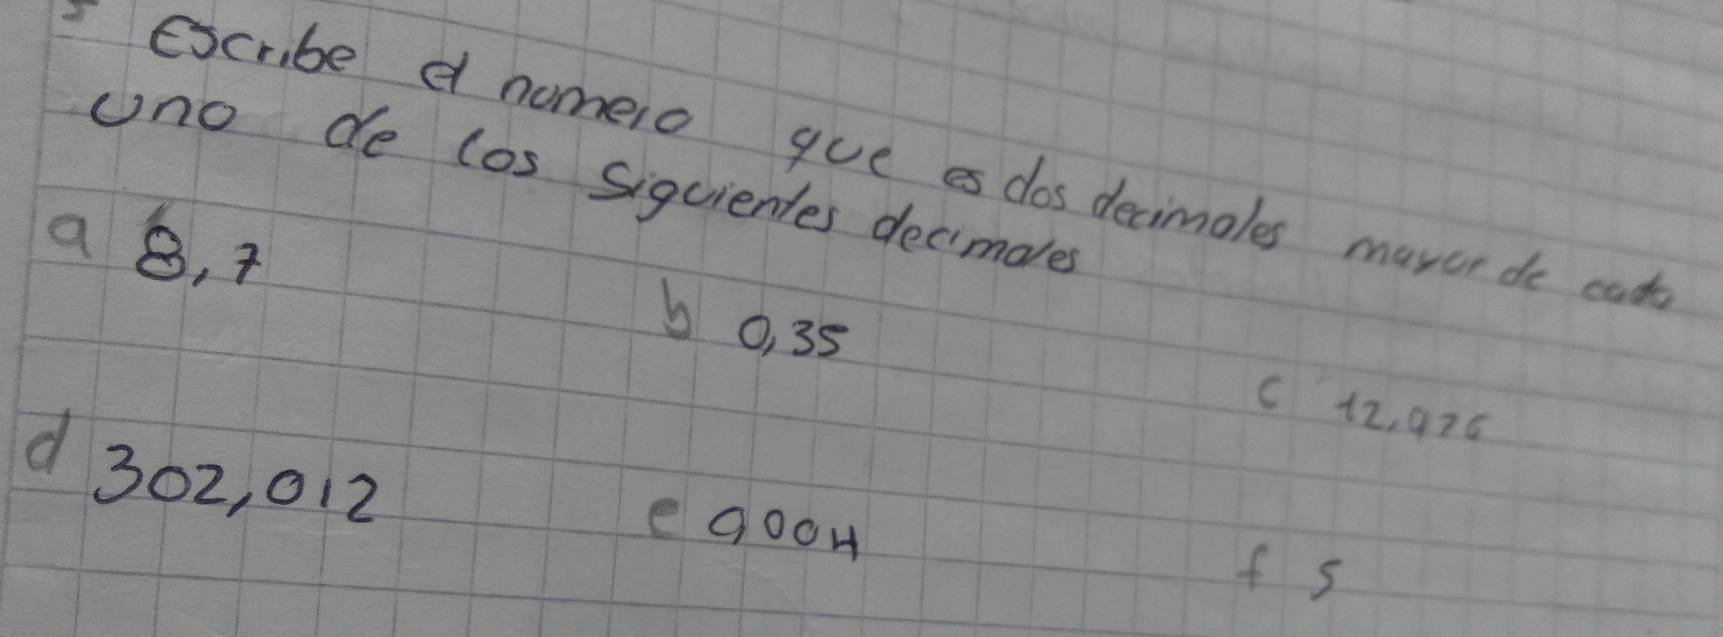 Escribe el numero que es dos decimales mayor de cada
uno de los siguientes decimales
a 8,7
b 0,35
c 12,976
d 302,012
e 9004
f 5